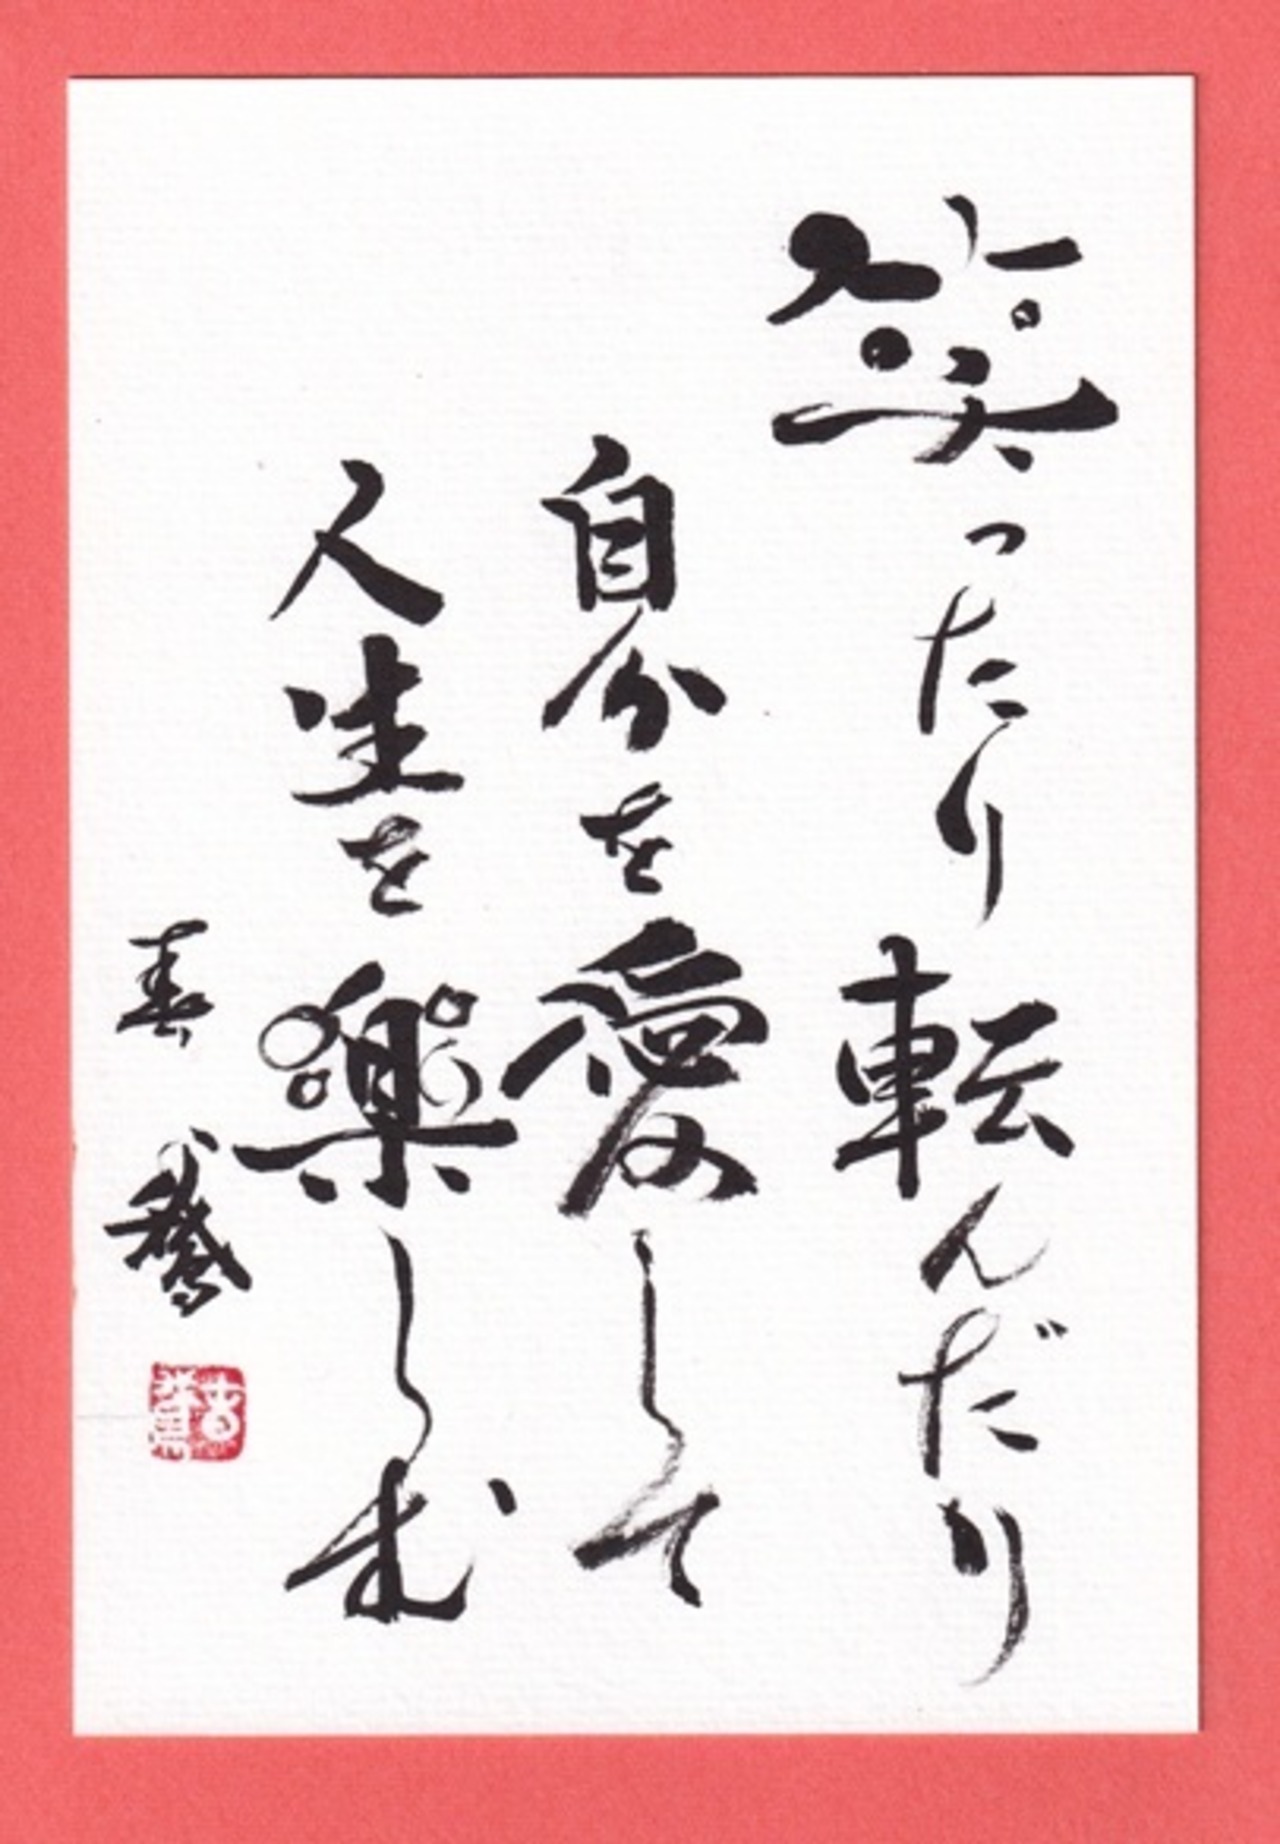 笑ったり転んだり
自分を愛して
人生を楽しむ
春